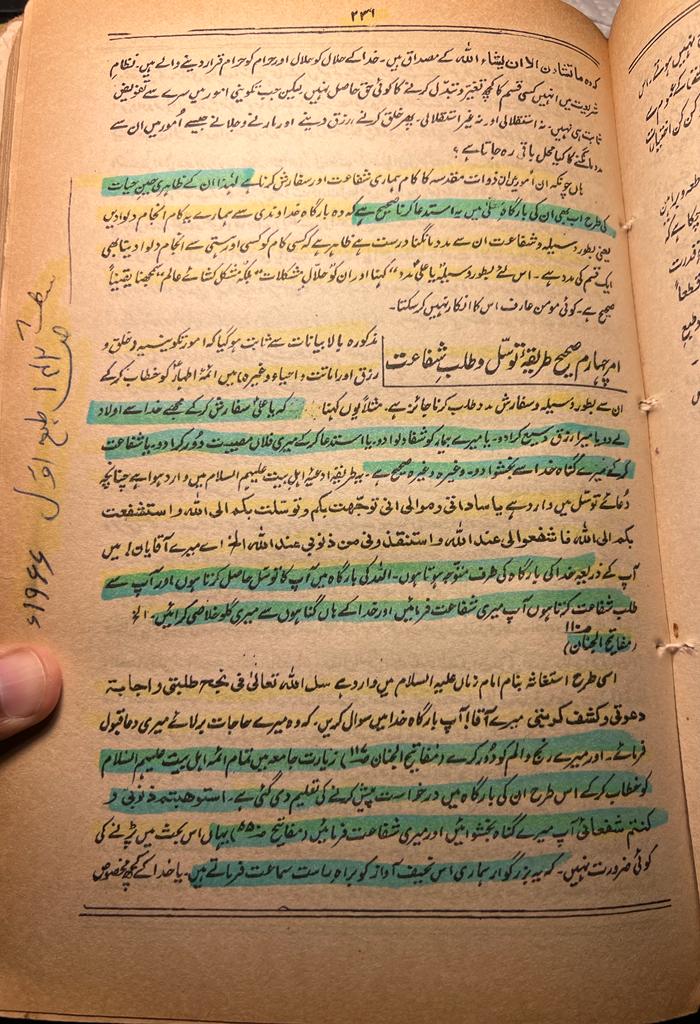 ۲۳۶
کہ وہ ما تشاؤن الا ان یشاء اللہ کے مصداق ہیں۔ خدا کے حلال کو حلال اور حرام کو حرام قرار دینے والے ہیں۔ نظامِ
شریعت میں انہیں کسی قسم کا کچھ تغیّر و تبدّل کرنے کا کوئی حق حاصل نہیں لیکن جب تکوینی امور میں سرے سے تفویض
ثابت ہی نہیں۔ نہ استقلالی اور نہ غیر استقلالی۔ پھر خلق کرنے، رزق دینے اور مارنے و جلانے جیسے اُمور میں ان سے
مدد مانگنے کا کیا محل باقی رہ جاتا ہے؟
ہاں چونکہ ان اُمور میں ان ذوات مقدسہ کا کام ہماری شفاعت اور سفارش کرنا ہے لہٰذا ان کے ظاہری حین حیات
کی طرح اب بھی ان کی بارگاہ میں یہ استدعا کرنا صحیح ہے کہ وہ بارگاہ خداوندی سے ہمارے یہ کام انجام دلوادیں
یعنی بطور وسیلہ و شفاعت ان سے مدد مانگنا درست ہے ظاہر ہے کہ کسی کام کو کسی اور ہستی سے انجام دلوا دینا بھی
ایک قسم کی مدد ہے۔ اس لئے بطور وسیلہ "یا علیؑ مدد" کہنا اور ان کو "حلالِ مشکلات" بلکہ "مشکل کشائے عالم" سمجھنا یقیناً
صحیح ہے۔ کوئی مومن عارف اس کا انکار نہیں کر سکتا۔
امر چہارم صحیح طریقۂ توسّل و طلب شفاعت
مذکورہ بالا بیانات سے ثابت ہو گیا کہ امور تکوینیہ و خلق و
رزق اور اماتت و احیاء وغیرہ میں ائمۂ اطہارؑ کو خطاب کر کے
ان سے بطور وسیلہ و سفارش مدد طلب کرنا جائز ہے۔ مثلاً یوں کہنا کہ یا علیؑ سفارش کر کے مجھے خدا سے اولاد
لے دو یا میرا رزق وسیع کرا دو۔ یا میرے بیمار کو شفا دلوا دو۔ یا استدعا کر کے میری فلاں مصیبت دُور کرا دو۔ یا شفاعت
کر کے میرے گناہ خدا سے بخشوا دو۔ وغیرہ وغیرہ صحیح ہے۔ یہ طریقہ ادعیۂ اہل بیت علیہم السلام میں وارد ہوا ہے چنانچہ
دُعائے توسل میں وارد ہے یا ساداتی و موالی انی توجھت بکم و توسلت بکم الی اللہ و استشفعت
بکم الی اللہ فاشفعوا لی عند اللہ و استنقذونی من ذنوبی عند اللہ الخ اے میرے آقایان! میں
آپ کے ذریعہ خدا کی بارگاہ کی طرف متوجہ ہوتا ہوں۔ اللہ کی بارگاہ میں آپ کا توسل حاصل کرتا ہوں اور آپ سے
طلب شفاعت کرتا ہوں آپ میری شفاعت فرمائیں اور خدا کے ہاں گناہوں سے میری گلو خلاصی کرائیں۔ الخ
(مفاتیح الجنان ص۱۱۰)
اسی طرح استغاثہ بنام امام زماں علیہ السلام میں وارد ہے سل اللہ تعالیٰ فی نجح طلبتی و اجابۃ
دعوتی و کشف کربتی میرے آقا! آپ بارگاہ خدا میں سوال کریں۔ کہ وہ میرے حاجات بر لائے میری دعا قبول
فرمائے۔ اور میرے رنج و الم کو دُور کرے (مفاتیح الجنان ص۱۱۷) زیارت جامعہ میں تمام ائمہ اہل بیت علیہم السلام
کو خطاب کر کے اس طرح ان کی بارگاہ میں درخواست پیش کرنے کی تعلیم دی گئی ہے۔ استوھبتم ذنوبی و
کنتم شفعائی آپ میرے گناہ بخشوائیں اور میری شفاعت فرمائیں (مفاتیح ص۵۵۰) یہاں اس بحث میں پڑنے کی
کوئی ضرورت نہیں۔ کہ یہ بزرگوار ہماری اس نحیف آواز کو براہِ راست سماعت فرماتے ہیں۔ یا خدا کے کچھ مخصوص
طبع اوّل
۱۹۶۶ء